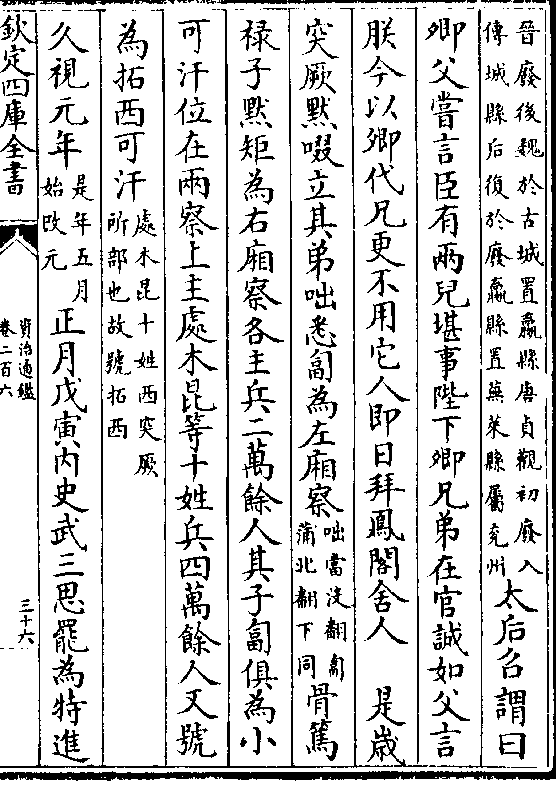 晉廢後魏於古城置嬴縣唐貞觀初廢入
傳城縣后復於廢嬴縣置萊蕪縣屬兗州
太后召謂曰
卿父嘗言臣有兩兒堪事陛下卿兄弟在官誠如父言
朕今以卿代兄更不用它人即日拜鳳閣舍人　是歳
突厥黙啜立其弟咄悉匐為左廂察
咄當没翻匐
蒲北翻下同
骨篤
禄子黙矩為右廂察各主兵二萬餘人其子匐俱為小
可汗位在兩察上主處木昆等十姓兵四萬餘人又號
為拓西可汗
處木昆十姓西突厥
所部也故號拓西
久視元年
是年五月
始改元
正月戊寅内史武三思罷為特進
欽定四庫全書
資治通鑑
卷二百六
三十六